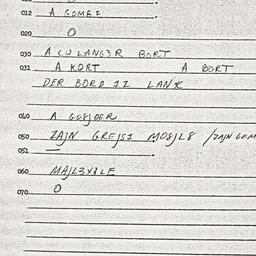 012 A GOMBI
020 O
030 A CU LANG3R BORT
031 A KORT A BORT
DER BORD IZ LANK
040
050 ZAJN GREJSI MO8JL8 /ZAJN GEM
051 —
060 MAJL3X8LE
070 O